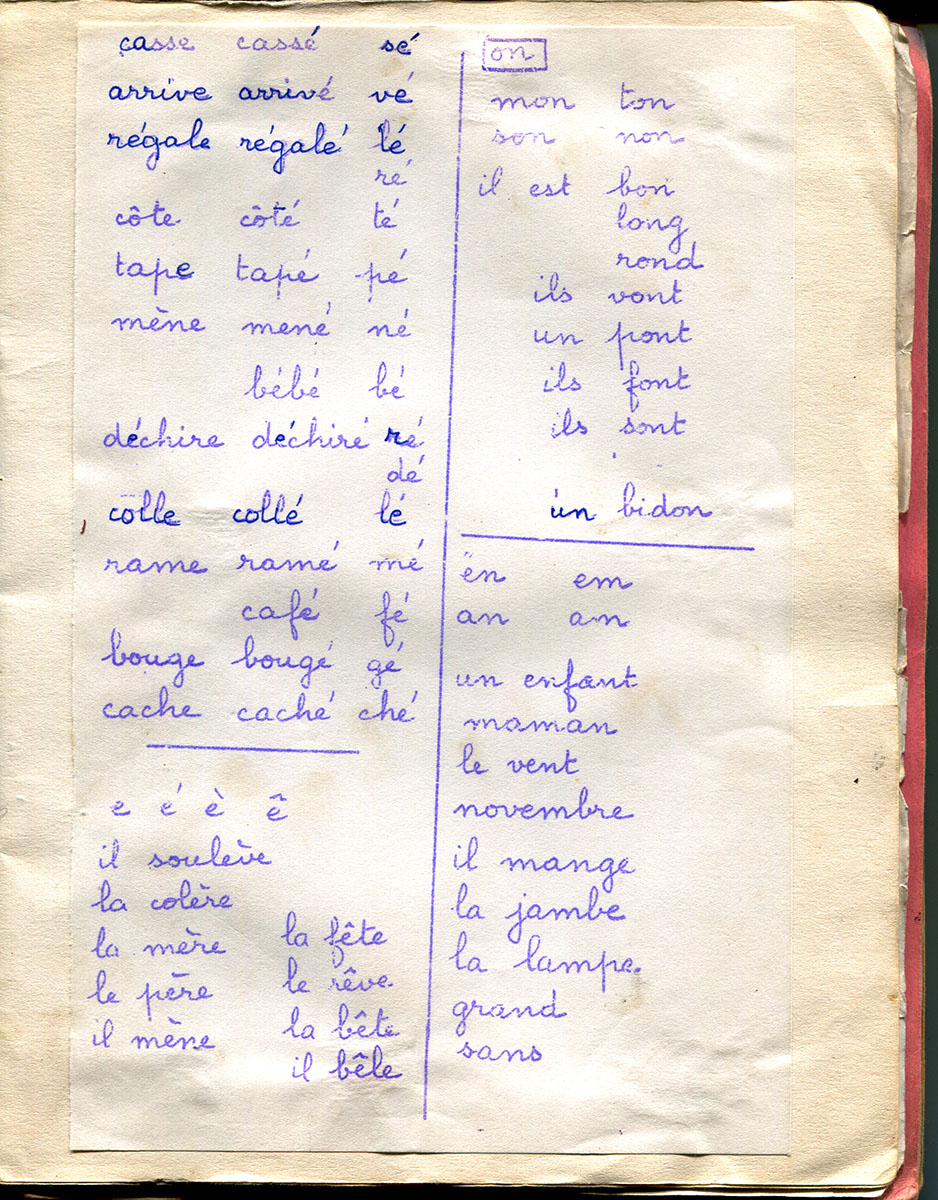 casse cassé sé
arrive arrivé vé
régale régalé lé
ré
côte côté té
tape tapé pé
mène mené né
bébé bé
déchire déchiré ré
dé
colle collé lé
rame ramé mé
café fé
bouge bougé gé
cache caché ché
e é è ê
il soulève
la colère
la mère la fête
le père le rêve
il mène la bête
il bêle
on
mon ton
son non
il est bon
long
rond
ils vont
un pont
ils font
ils sont
un bidon
en em
an an
un enfant
maman
le vent
novembre
il mange
la jambe
la lampe.
grand
sans